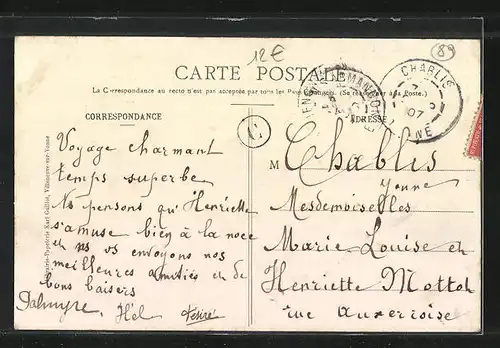 12€
89
CARTE POSTALE
La Correspondance au recto n'est pas acceptée par tous les Pays étrangers. (Se renseigner à la Poste.)
CORRESPONDANCE
ADRESSE
C
CHABLIS
07
YONNE
Voyage charmant
temps superbe
Ns pensons qu'Henriette
s'amuse bien à la noce
et ns vs envoyons nos
meilleures amitiés et de
bons baisers
Dalmyre, Hel Désiré
M
Chablis
Yonne
Mesdemoiselles
Marie Louise et
Henriette Mottot
rue Auxerroise
Librairie-Papeterie Karl Guillot, Villeneuve-sur-Yonne